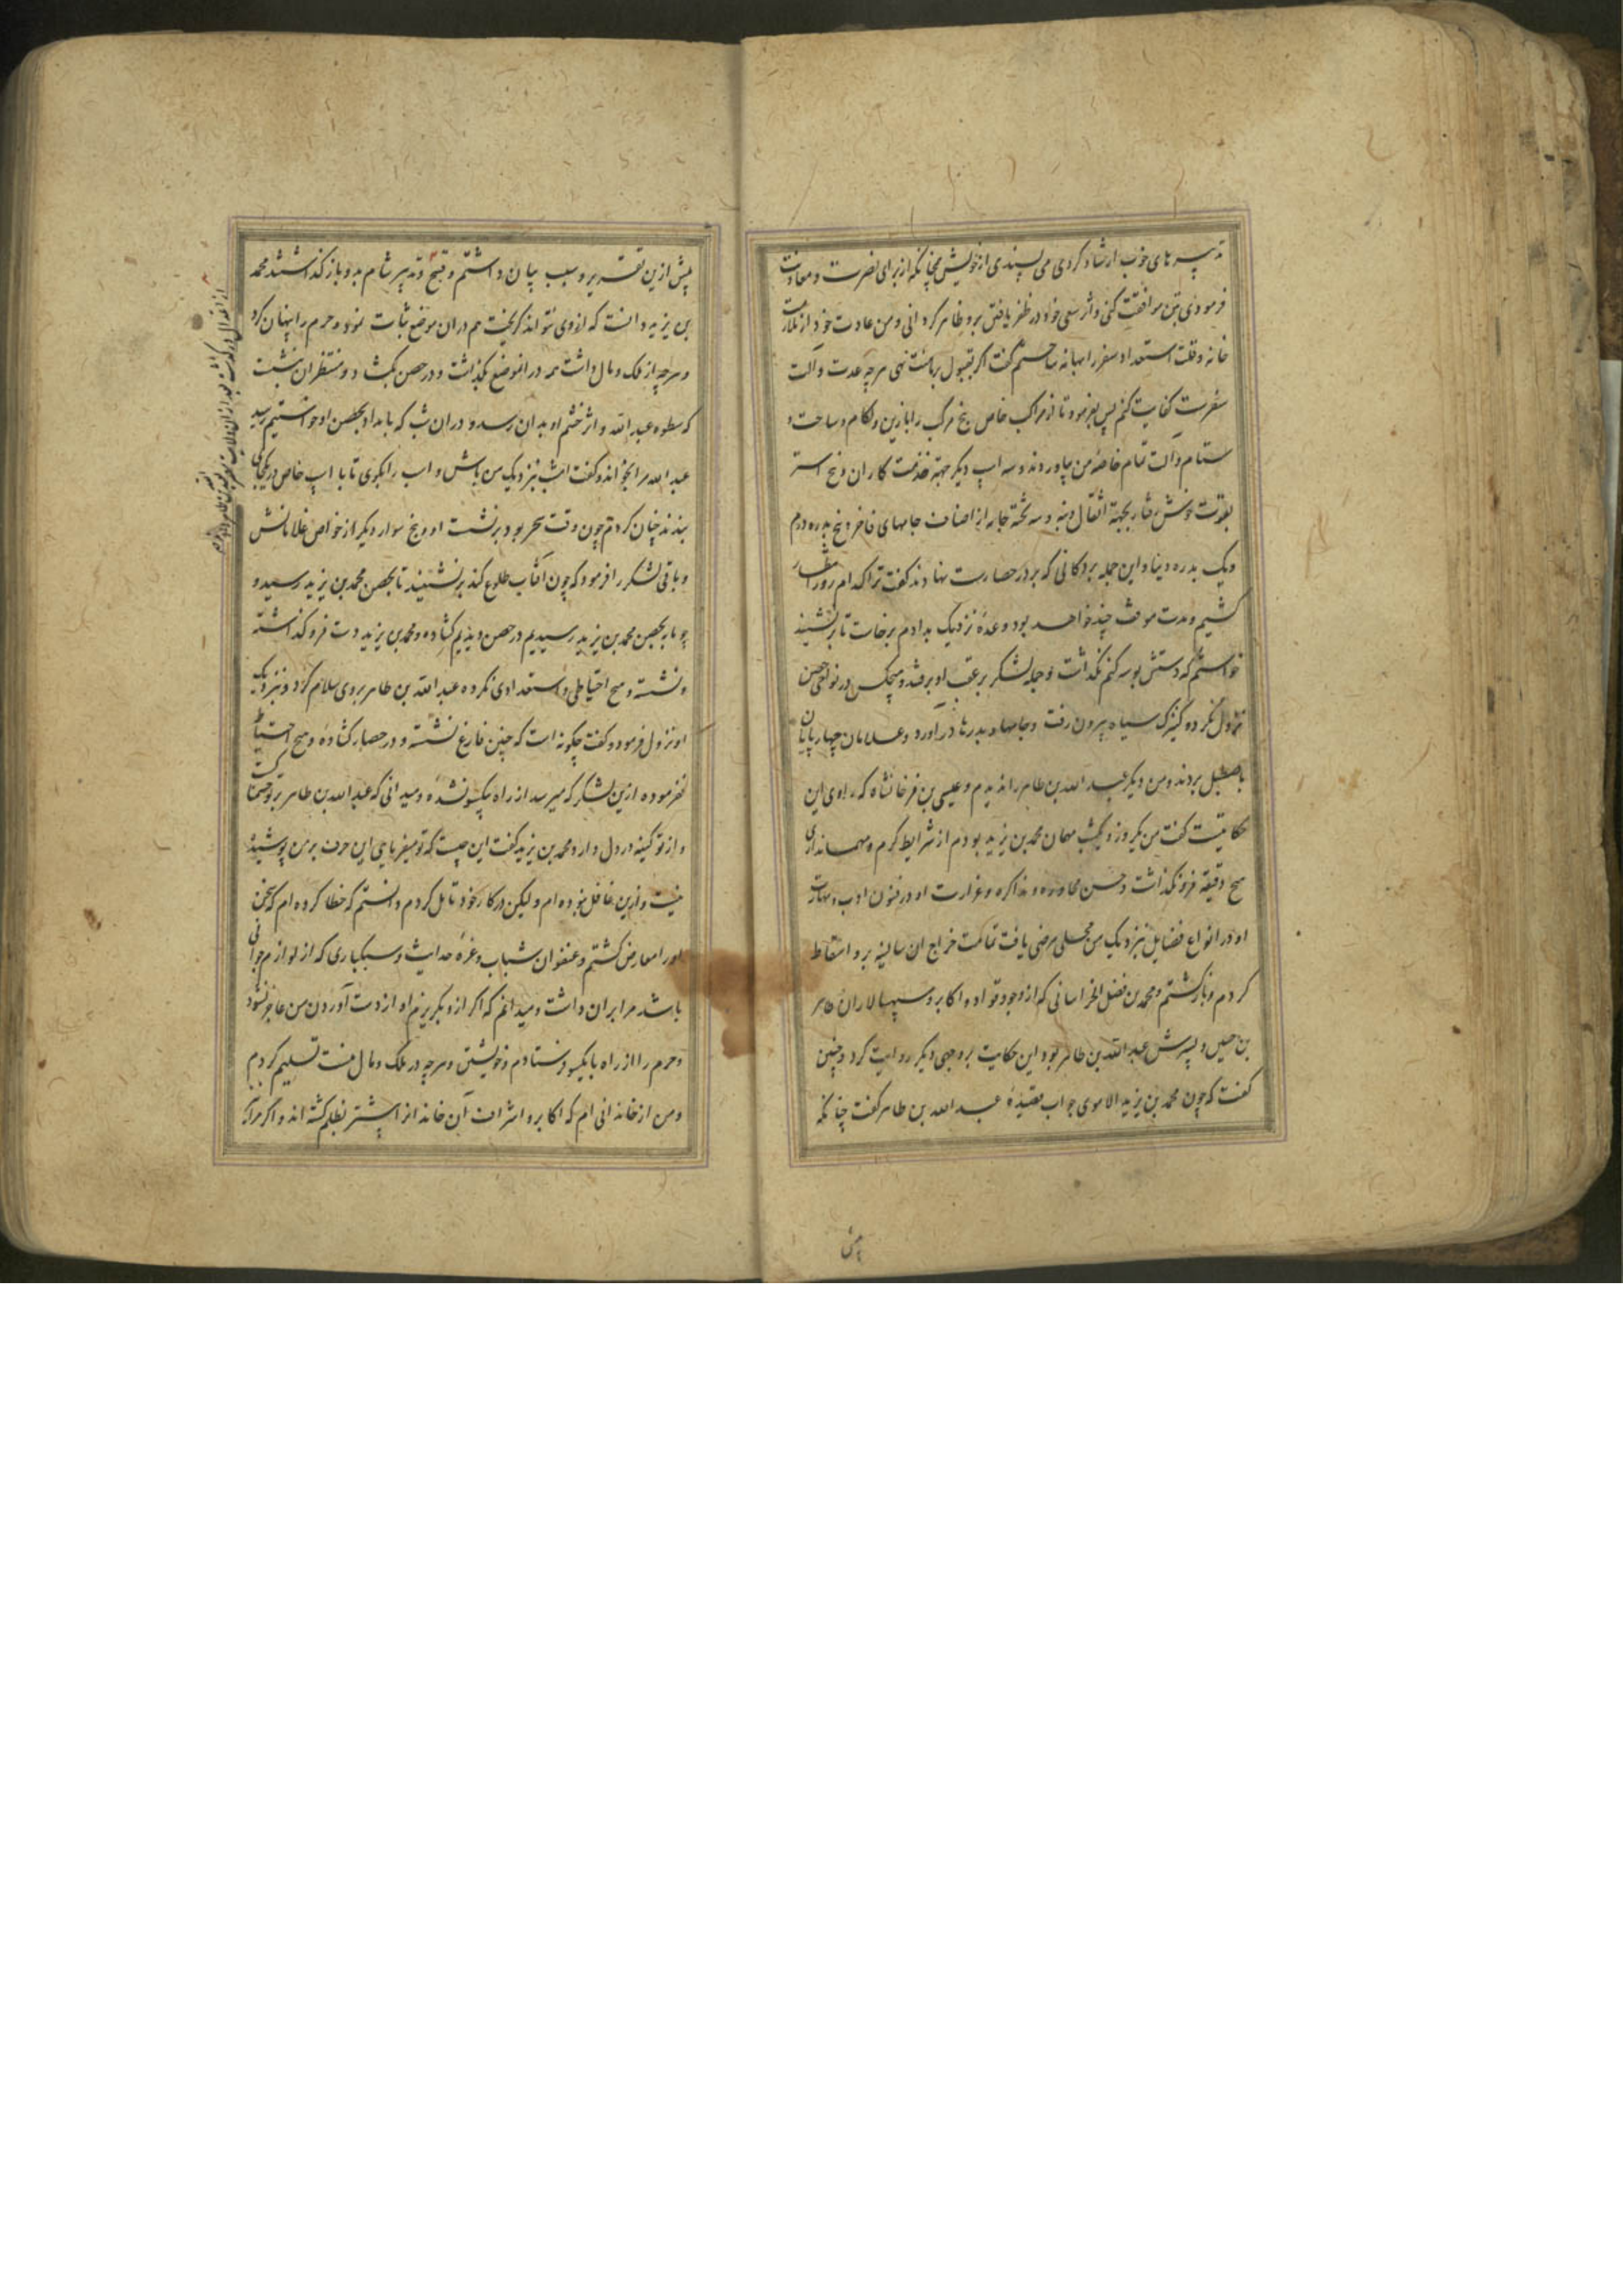 تدبیرهای خوب ارشاد کردی می پسندی از خویش همچنانکه از برای نصرت و معاونت
فرمودی بتن موافقت کنی و اثر سعی خود در ظفر یافتن برو ظاهر گردانی و من عادت خود از ملازمت
خانه و قلت استعداد سفر را بهانه ساختم گفت اگر بقبول برمانت نهی هرچه عدت و آلت
سفرست کفایت کنم پس بفرمود تا از مراکب خاص پنج مرکب را با زین و لگام و ساخت و
ستام و آلت تمام خاصهٔ من بیاوردند و سه اسپ دیگر جهة خدمت کاران و پنج استر
بقوت خوش رفتار بجهة اثقال و بنه و سه تخته جامه از اصناف جامهای فاخر و پنج بدره درم
و یک بدره دینار و این جمله بر دکانی که بر در حصارست بنهادند گفت ترا کدام روز انتظار
کشیم و مدت موقف چند خواهد بود وعدهٔ نزدیک بدادم برخاست تا برنشیند
خواستم که دستش بوسه کنم نگذاشت و جمله لشکر بر عقب او برفتند و هیچکس در نواحی حصن
نزول نکرد و کنیزک سیاه بیرون رفت و جامها و بدرها در آورد و غلامان چهارپایان
باصطبل بردند و من دیگر عبد الله بن طاهر را ندیدم و عیسی بن فرخانشاه که راوی این
حکایتست گفت من یکروز و یکشب مهمان محمد بن یزید بودم از شرایط کرم و مهمانداری
هیچ دقیقه فرو نگذاشت و حسن محاوره و مذاکره و غزارت او در فنون ادب و مهارت
او در انواع فضایل نزدیک من محلی مرضی یافت تمامت خراج ان سالینه برو اسقاط
کردم و بازگشتم و محمد بن فضل الخراسانی که از وجوه قواد و اکابر و سپهسالاران طاهر
بن حسین و پسرش عبد الله بن طاهر بود این حکایت بروجهی دیگر روایت کرد و چنین
گفت که چون محمد بن یزید الاموی جواب قصیدهٔ عبد الله بن طاهر گفت چنانکه
پیش
پیش ازین تقریر و سبب بیان داشتم و قبیح و تدبیر شام بدو باز گذاشتند محمد
بن یزید دانست که ازوی نتواند گریخت هم دران موضع ثبات نمود و حرم را پنهان کرد
و هرچه از ملک و مال داشت همه در انموضع بگذاشت و در حصن بگشاد و منتظر ان بنشست
که سطوه عبد الله و اثر خشم او بدان رسد و دران شب که بامداد بحصن او خواستیم رسید
عبد الله مرا بخواند و گفت امشب نزدیک من باش و اسب را بگوی تا با اسپ خاص در یکجای
ببندند چنان کردم چون وقت سحر بود برنشست او و پنج سوار دیگر از خواص غلامانش
و باقی لشکر را فرمود که چون آفتاب طلوع کند برنشینید تا بحصن محمد بن یزید رسید و
چو ما بحصن محمد بن یزید رسیدیم در حصن دیدیم کشاده و محمد بن یزید دست فرو گذاشته
و نشسته و هیچ احتیاطی و استعدادی نکرده عبد الله بن طاهر بروی سلام کرد و نزدیک
او نزول فرمود و گفت چگونه است که چنین فارغ نشسته و در حصار کشاده و هیچ احتیاط
نفرموده ازین لشکر که میرسد از راه بیکسو نشده و میدانی که عبد الله بن طاهر بر تو خشمناکست
و از تو کینه در دل دارد محمد بن یزید گفت این چیست که تو میفرمایی این حرف بر من پوشیده
نیست و ازین غافل نبوده ام و لیکن در کار خود تامل کردم و دانستم که خطا کرده ام که سخن
او را معارض گشتم و عنفوان شباب و غرهٔ حداثت و سبکباری که از لوازم جوانی
باشد مرا بران داشت و میدانم که اگر ازو بگریزم او از دست آوردن من عاجز نشود
و حرم را از راه بایکسو فرستادم و خویشتن و هرچه در ملک و مال منست تسلیم کردم
و من از خاندانی ام که اکابر و اشراف آن خاندانرا بیشتر بظلم کشته اند و اگر مرا که